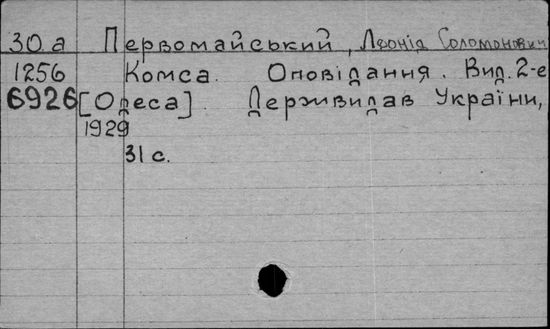 30.а Первомайський, Леонід Соломонович
1256 Комса. Оповідання. Вид. 2-е
6926 [Одеса]. Держвидав України,
1929
31 с.